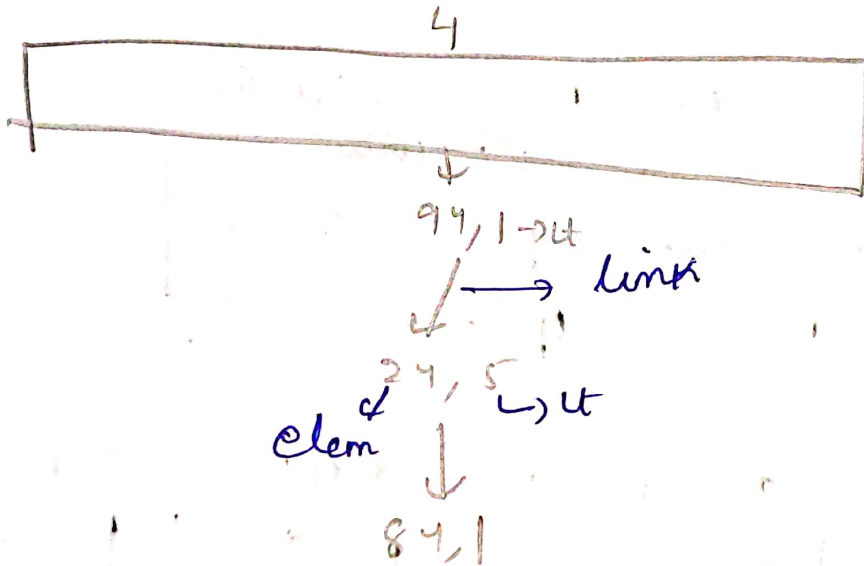 4
94, 1 → ct
link
24, 5
ct
elem
84, 1